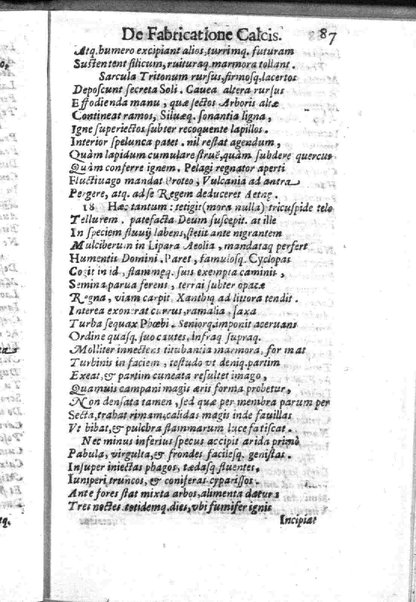 De Fabricatione Calcis. 87
Atq. humero excipiant alios, turrimq. futuram
Sustentent silicum, ruituraq. marmora tollant.
Sarcula Tritonum rursus, firmosq. lacertos
Deposcunt secreta Soli. Cauea altera rursus
Effodienda manu, quæ sectos Arboris altæ
Contineat ramos, Siluæq. sonantia ligna,
Igne superiectos subter recoquente lapillos.
Interior spelunca patet. nil restat agendum,
Quàm lapidum cumulare struē, quàm subdere quercus
Quàm conferre ignem. Pelagi regnator aperti
Fluctiuago mandat Proteo, Vulcania ad antra
Pergere, atq. adse Regem deducat Aetnæ.
18 Hæc tantum: tetigit (mora nulla) tricuspide telo
Tellurem. patefacta Deum suscepit. at ille
In speciem fluuij labens, stetit ante nigrantem
Mulciberum in Lipara Aeolia, mandataq. perfert
Humentis Domini. Paret, famulosq. Cyclopas
Cogit in id, flammeq. suis exempta caminis,
Semina parua ferens, terrai subter opacæ
Regna, viam carpit. Xanthiq. ad littora tendit.
Interea exonerat currus, ramalia, saxa
Turba sequax Phœbi. Senior q. imponit aceruans
Ordine quasq. suo cautes, infraq. supraq.
Molliter innectens titubantia marmora, format
Turbinis in faciem, testudo vt deniq. partim
Exeat, & partim cuneata resultet imago,
Quamuis campani magis æris forma probetur,
Non densata tamen, sed quæ per membra parum per
Secta, trahat rimam, calidas magis inde fauillas
Vt bibat, & pulchra flammarum luce fatiscat.
Nec minus inferius specus accipit arida primo
Pabula, virgulta, & frondes facilesq. genistas.
Insuper iniectas phagos, tædasq. fluentes,
Iuniperi truncos, & coniferas cyparissos.
Ante fores stat mixta arbos, alimenta datura
Tres noctes totidemq. dies, vbi fumifer ignis
Incipiat